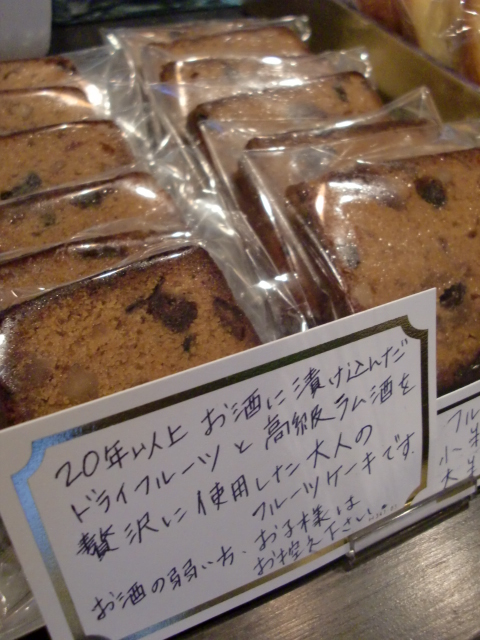 20年以上 お酒に漬け込んだ
ドライフルーツと高級ラム酒を
贅沢に使用した大人の
フルーツケーキです。
お酒の弱い方、お子様は
お控え下さい。
フル
小
大